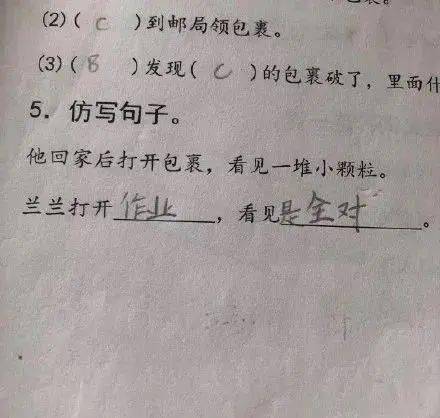 (2)( C )到邮局领包裹。
(3)( B )发现( C )的包裹破了，里面什
5. 仿写句子。
他回家后打开包裹，看见一堆小颗粒。
兰兰打开作业，看见是全对。